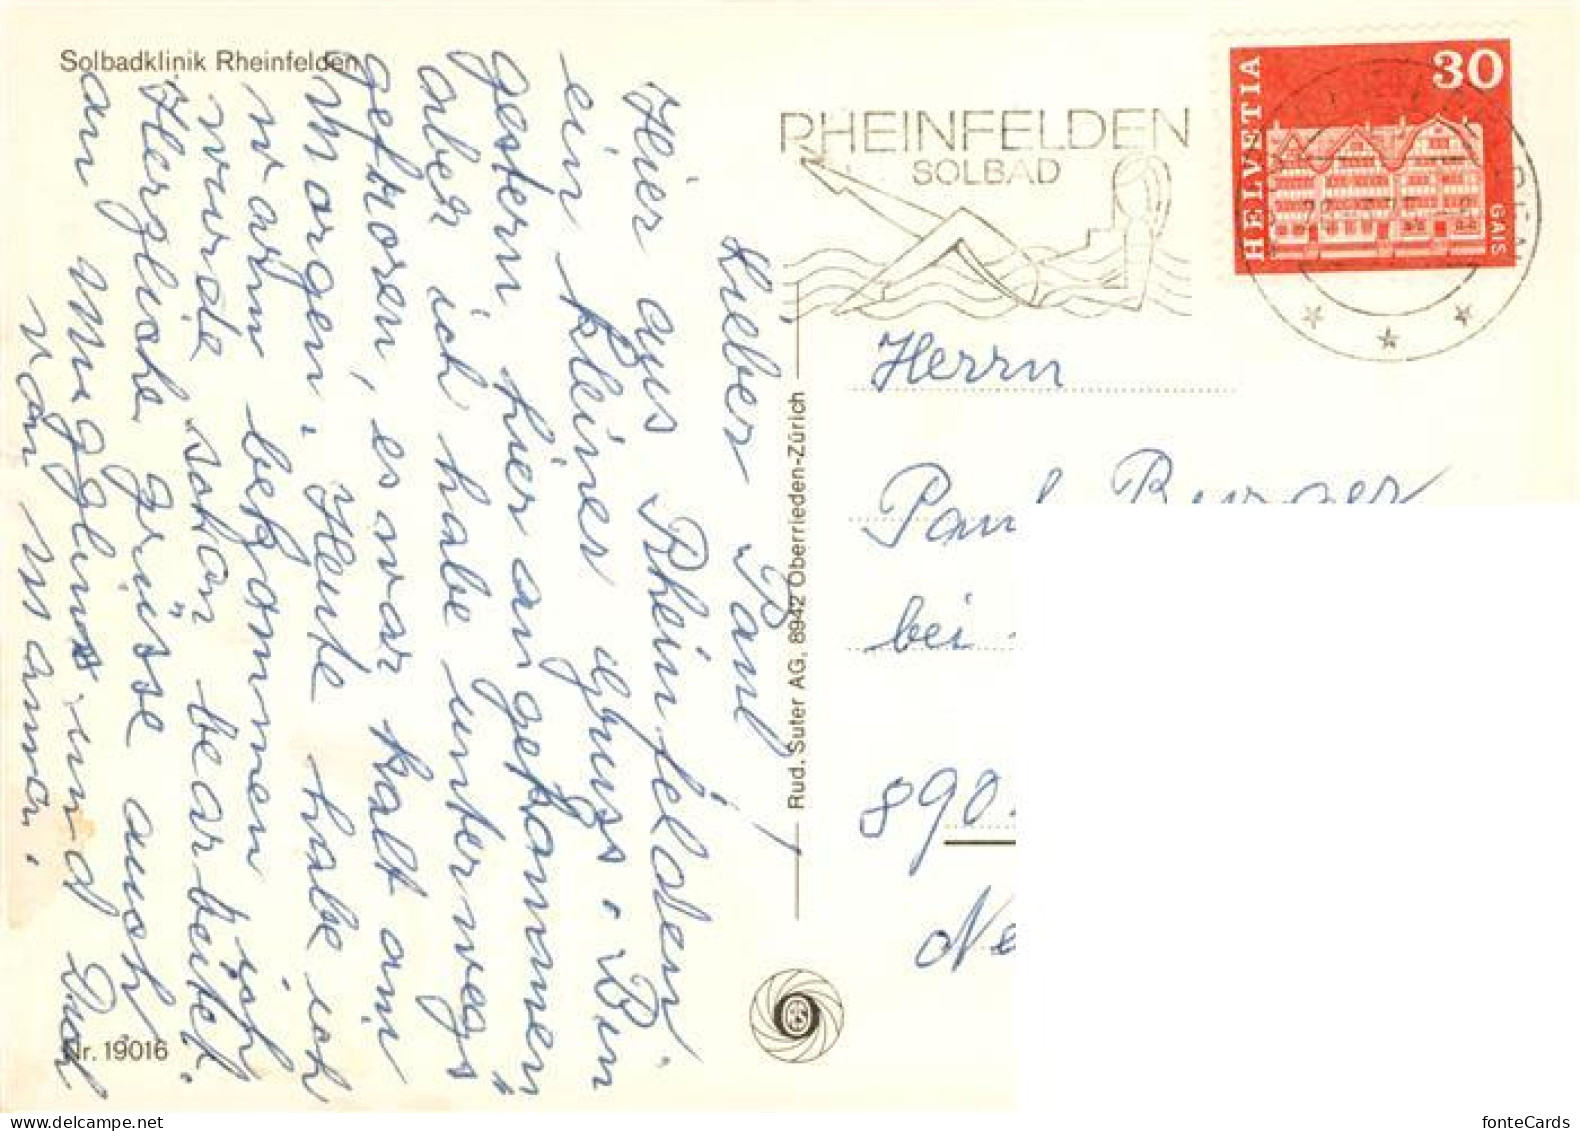 Solbadklinik Rheinfelden
Lieber Paul!
Hier aus Rheinfelden
ein kleiner Gruss. Bin
gestern hier angekommen
aber ich habe unterwegs
gefroren, es war kalt am
Morgen. Heute habe ich
warm bekommen ich
wurde schon bearbeitet.
Herzliche Grüsse auch
an und Dich
von
Nr. 19016
Rud. Suter AG, 8942 Oberrieden-Zürich
RHEINFELDEN
SOLBAD
HELVETIA
30
GAIS
Herrn
Paul
bei
890
Ne
fonteCards